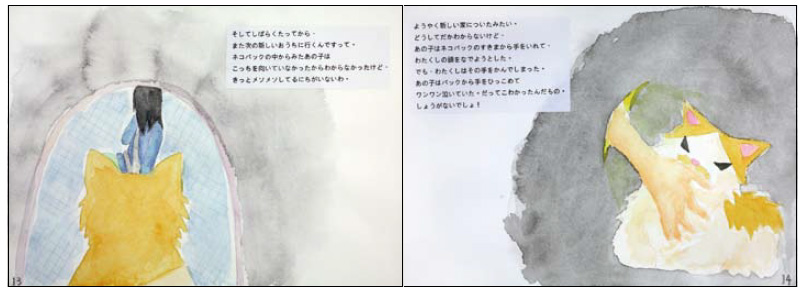 そしてしばらくたってから、
また次の新しいおうちに行くんですって。
ネコバックの中からみたあの子は
こっちを向いていなかったからわからなかったけど、
きっとメソメソしてるにちがいないわ。
13
ようやく新しい家についたみたい。
どうしてだかわからないけど、
あの子はネコバックのすきまから手をいれて、
わたくしの頭をなでようとした。
でも、わたくしはその手をかんでしまった。
あの子はバックから手をひっこめて
ワンワン泣いていた。だってこわかったんだもの。
しょうがないでしょ！
14